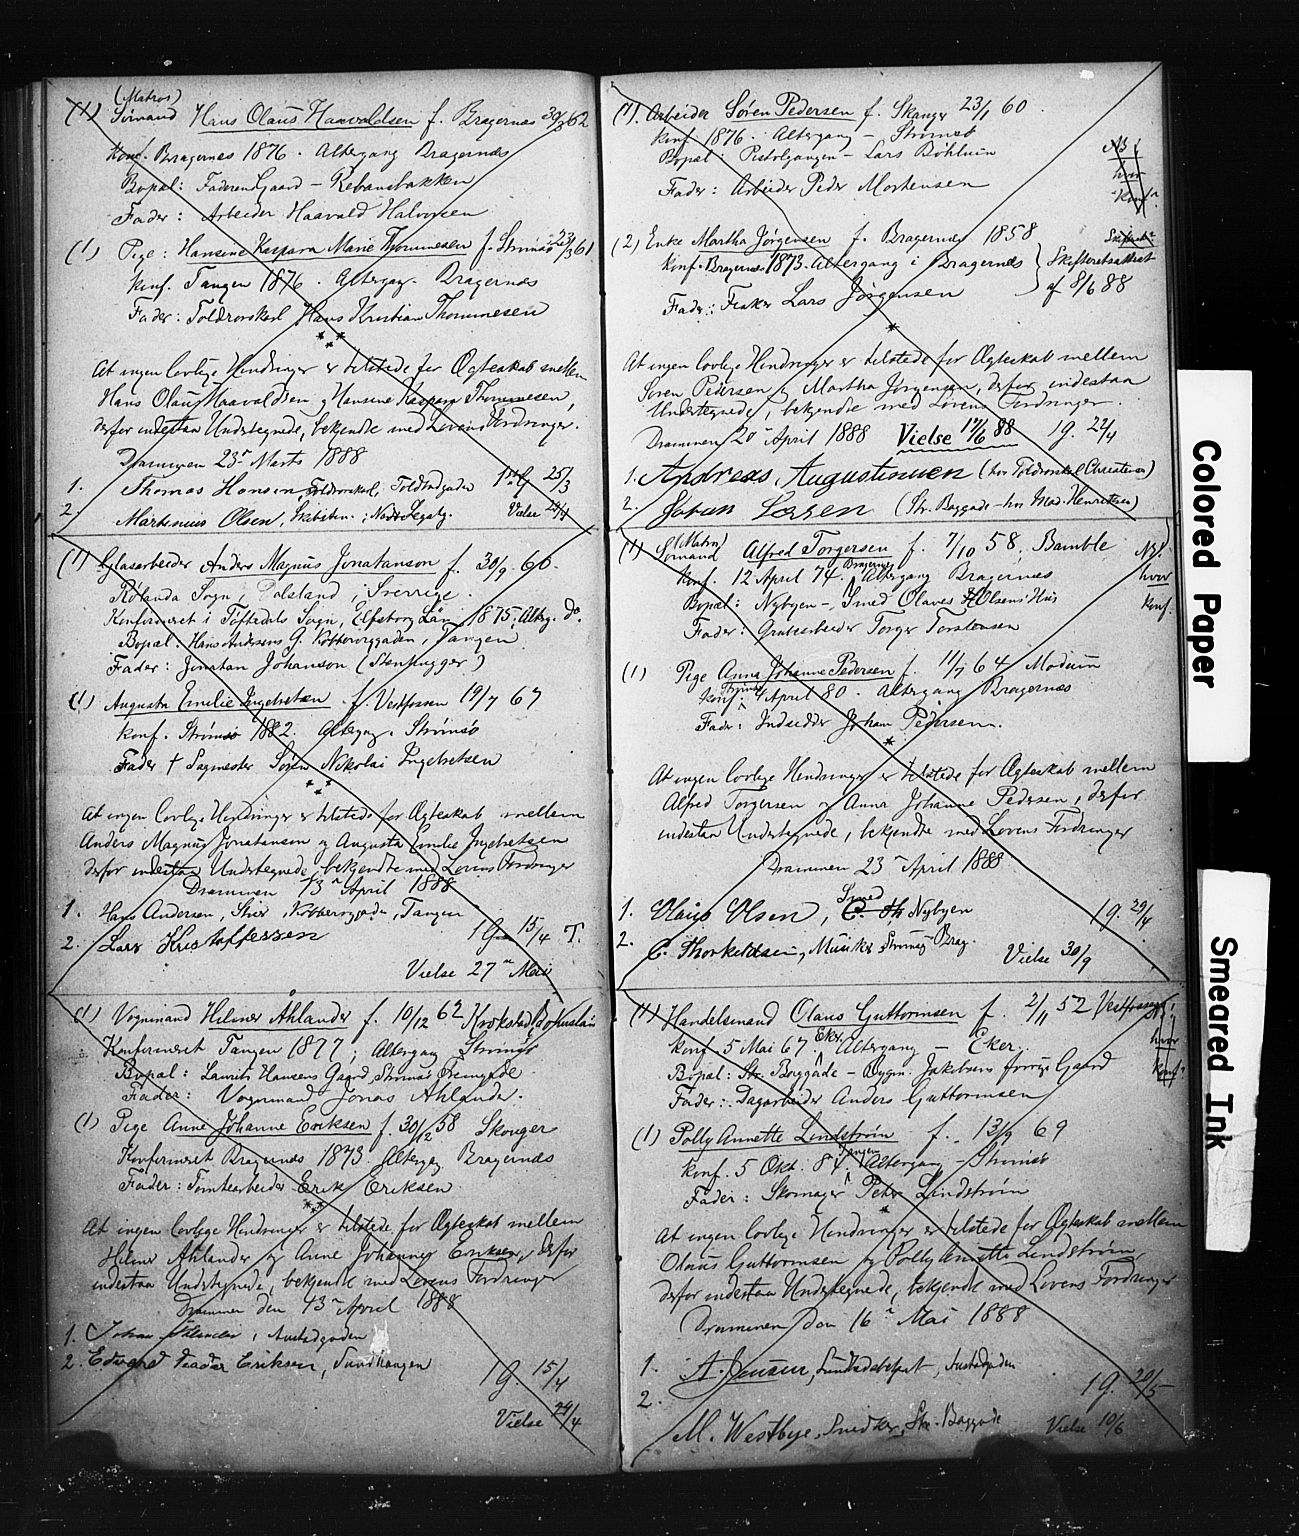 (Matros)
(1) Sømand Hans Olaus Haavaldsen f. Bragernes 30/3 62
Konf. Bragernes 1876. Altergang Bragernes
Bopæl: Faderens Gaard – Rebanebakken
Fader: Arbeider Haavald Halvorsen
(1) Pige: Hansine Kaspara Marie Thommesen f. Strømsø 23/3 61
Konf. Tangen 1876. Altergang Bragernes
Fader: Toldrorskarl Hans Kristian Thommesen
At ingen lovlige Hindringer er tilstede for Ægteskab mellem
Hans Olaus Haavaldsen og Hansine Kaspara Thommesen,
derfor indestaa Undertegnede, bekjendte med Lovens Fordringer.
Drammen 23de Marts 1888
1. Thomas Hansen Toldrorskarl, Toldbodgaden 1ste G 25/3
2. Martinius Olsen, Vielse
(1) Glasarbeider Anders Magnus Jonatanson f. 30/9 60.
Rölanda Sogn, Dalsland i Sverrige.
Konfirmeret i Töftedals Sogn, Elfsborg Län 1875. Alterg. do.
Bopæl: Hans Andersens G. Kobberviggaden, Tangen
Fader: Jonatan Johanson (Stenhugger)
(1) Augusta Emilie Ingebretsen f. Vestfossen 19/7 67
Konf. Strømsø 1882. Altergang. Strømsø
Fader † Sagmester Søren Nikolai Ingebretsen
At ingen lovlige Hindringer er tilstede for Ægteskab mellem
Anders Magnus Jonatanson og Augusta Emilie Ingebretsen
derfor indestaa Undertegnede, bekjendte med Lovens Fordringer
Drammen 13de April 1888
1. Hans Andersen, Kobbervigaden, Tangen
2. Lars Kristoffersen 1 G. 15/4 T.
Vielse 27de Mai
(1) Vognmand Hilmer Ahlander f. 10/12 62 Krokstad, Bohuslän
Konfirmeret Tangen 1877; Altergang Strømsø
Bopæl: Laurits Hansens Gaard, Strømsø Tverrgade.
Fader: Vognmand Jonas Ahlander.
(1) Pige Anne Johanne Eriksen f. 30/12 58 Skouger
Konfirmeret Bragernes 1873 Alterg. Bragernes
Fader: Tomtearbeider Erik Eriksen
At ingen lovlige Hindringer er tilstede for Ægteskab mellem
Hilmer Ahlander og Anne Johanne Eriksen, derfor
indestaa Undertegnede, bekjendte med Lovens Fordringer
Drammen den 13de April 1888
1. Johan Ahlander, Austadgaden
2. Edvard Eriksen, Sundhaugen
1 G. 15/4
Vielse 29/4
(1). Arbeider Søren Pedersen f. Skouger 23/1 60.
Konf. 1876. Altergang – Strømsø
Bopæl: Pistolgangen – Lars Bøhlum
NB!
hvor
konf.
Fader: Arbeider Peder Mortensen
(2) Enke Martha Jørgensen f. Bragernes 1858
Konf. Bragernes 1873. Altergang i Bragernes
Skifteretsattest
af 8/6 88
Fader: Fisker Lars Jørgensen
At ingen lovlige Hindringer er tilstede for Ægteskab mellem
Søren Pedersen og Martha Jørgensen, derfor indestaa
Undertegnede, bekjendte med Lovens Fordringer.
Drammen 20de April 1888 Vielse 17/6 88 1 G. 22/4
1. Andreas Augustinusen (hos Toldrorskarl Christensen)
2. Johan Larsen (Str. Baggade – hos Mad. Henriksen)
(Matros)
(1) Sømand Alfred Torgersen f. 7/10 58. Bamble
NB!
hvor
konf.
Konf. 12 April 74. Bragernes Altergang Bragernes
Bopæl: Nybyen –, Smed Olaves Olsens Hus
Fader: Grubearbeider Torger Torstensen
(1) Pige Anna Johanne Pedersen f. 11/7 64 Modum
Konf. 4 April 80. Altergang Bragernes
Fader: Indsidder Johan Pedersen.
At ingen lovlige Hindringer er tilstede for Ægteskab mellem
Alfred Torgersen og Anna Johanne Pedersen, derfor
indestaa Undertegnede, bekjendte med Lovens Fordringer
Drammen 23de April 1888
1. Olaus Olsen, Smed Nybyen 1 G. 29/4
2. C. Thorkildsen, Musiker Brag. Vielse 30/9
(1) Handelsmand Olaus Guttormsen f. 2/11 52 Vestfossen
NB!
hvor
konf.
Konf. 5 Mai 67 Eker Altergang – Eker.
Bopæl: Str. Baggade – Bygm. Jakobsens forrige Gaard
Fader: Dagarbeider Anders Guttormsen
(1) Polly Annette Lindstrøm f. 13/9 69
Konf. 5 Okt. 84. Tangen Altergang – Strømsø
Fader: Skomager Peter Lindstrøm
At ingen lovlige Hindringer er tilstede for Ægteskab mellem
Olaus Guttormsen og Polly Annette Lindstrøm,
derfor indestaa Undertegnede, bekjendte med Lovens Fordringer
Drammen den 16de Mai 1888
1. A. Jensen, Austadgaden
2. 1 G. 20/5
M. Westbye, Snedker, Str. Baggade Vielse 10/6
Colored Paper
Smeared Ink